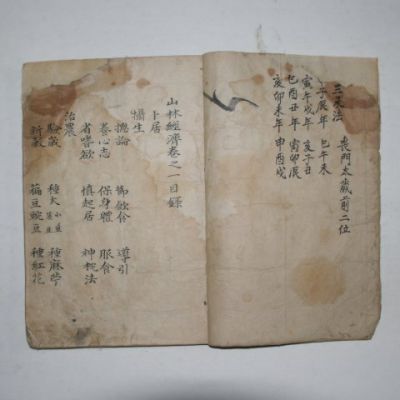 三灾法 喪門太歲前二位
子辰年 巳午未
寅午戌年 亥子丑
巳酉丑年 寅卯辰
亥卯未年 申酉戌
山林經濟卷之一目錄
卜居
攝生
總論 御飲食 導引
養心志 保身體 服食
省嗜欲 慎起居 神枕法
治農
驗歲 種大小豆 種麻苧
祈穀 藊豆豌豆 種紅花